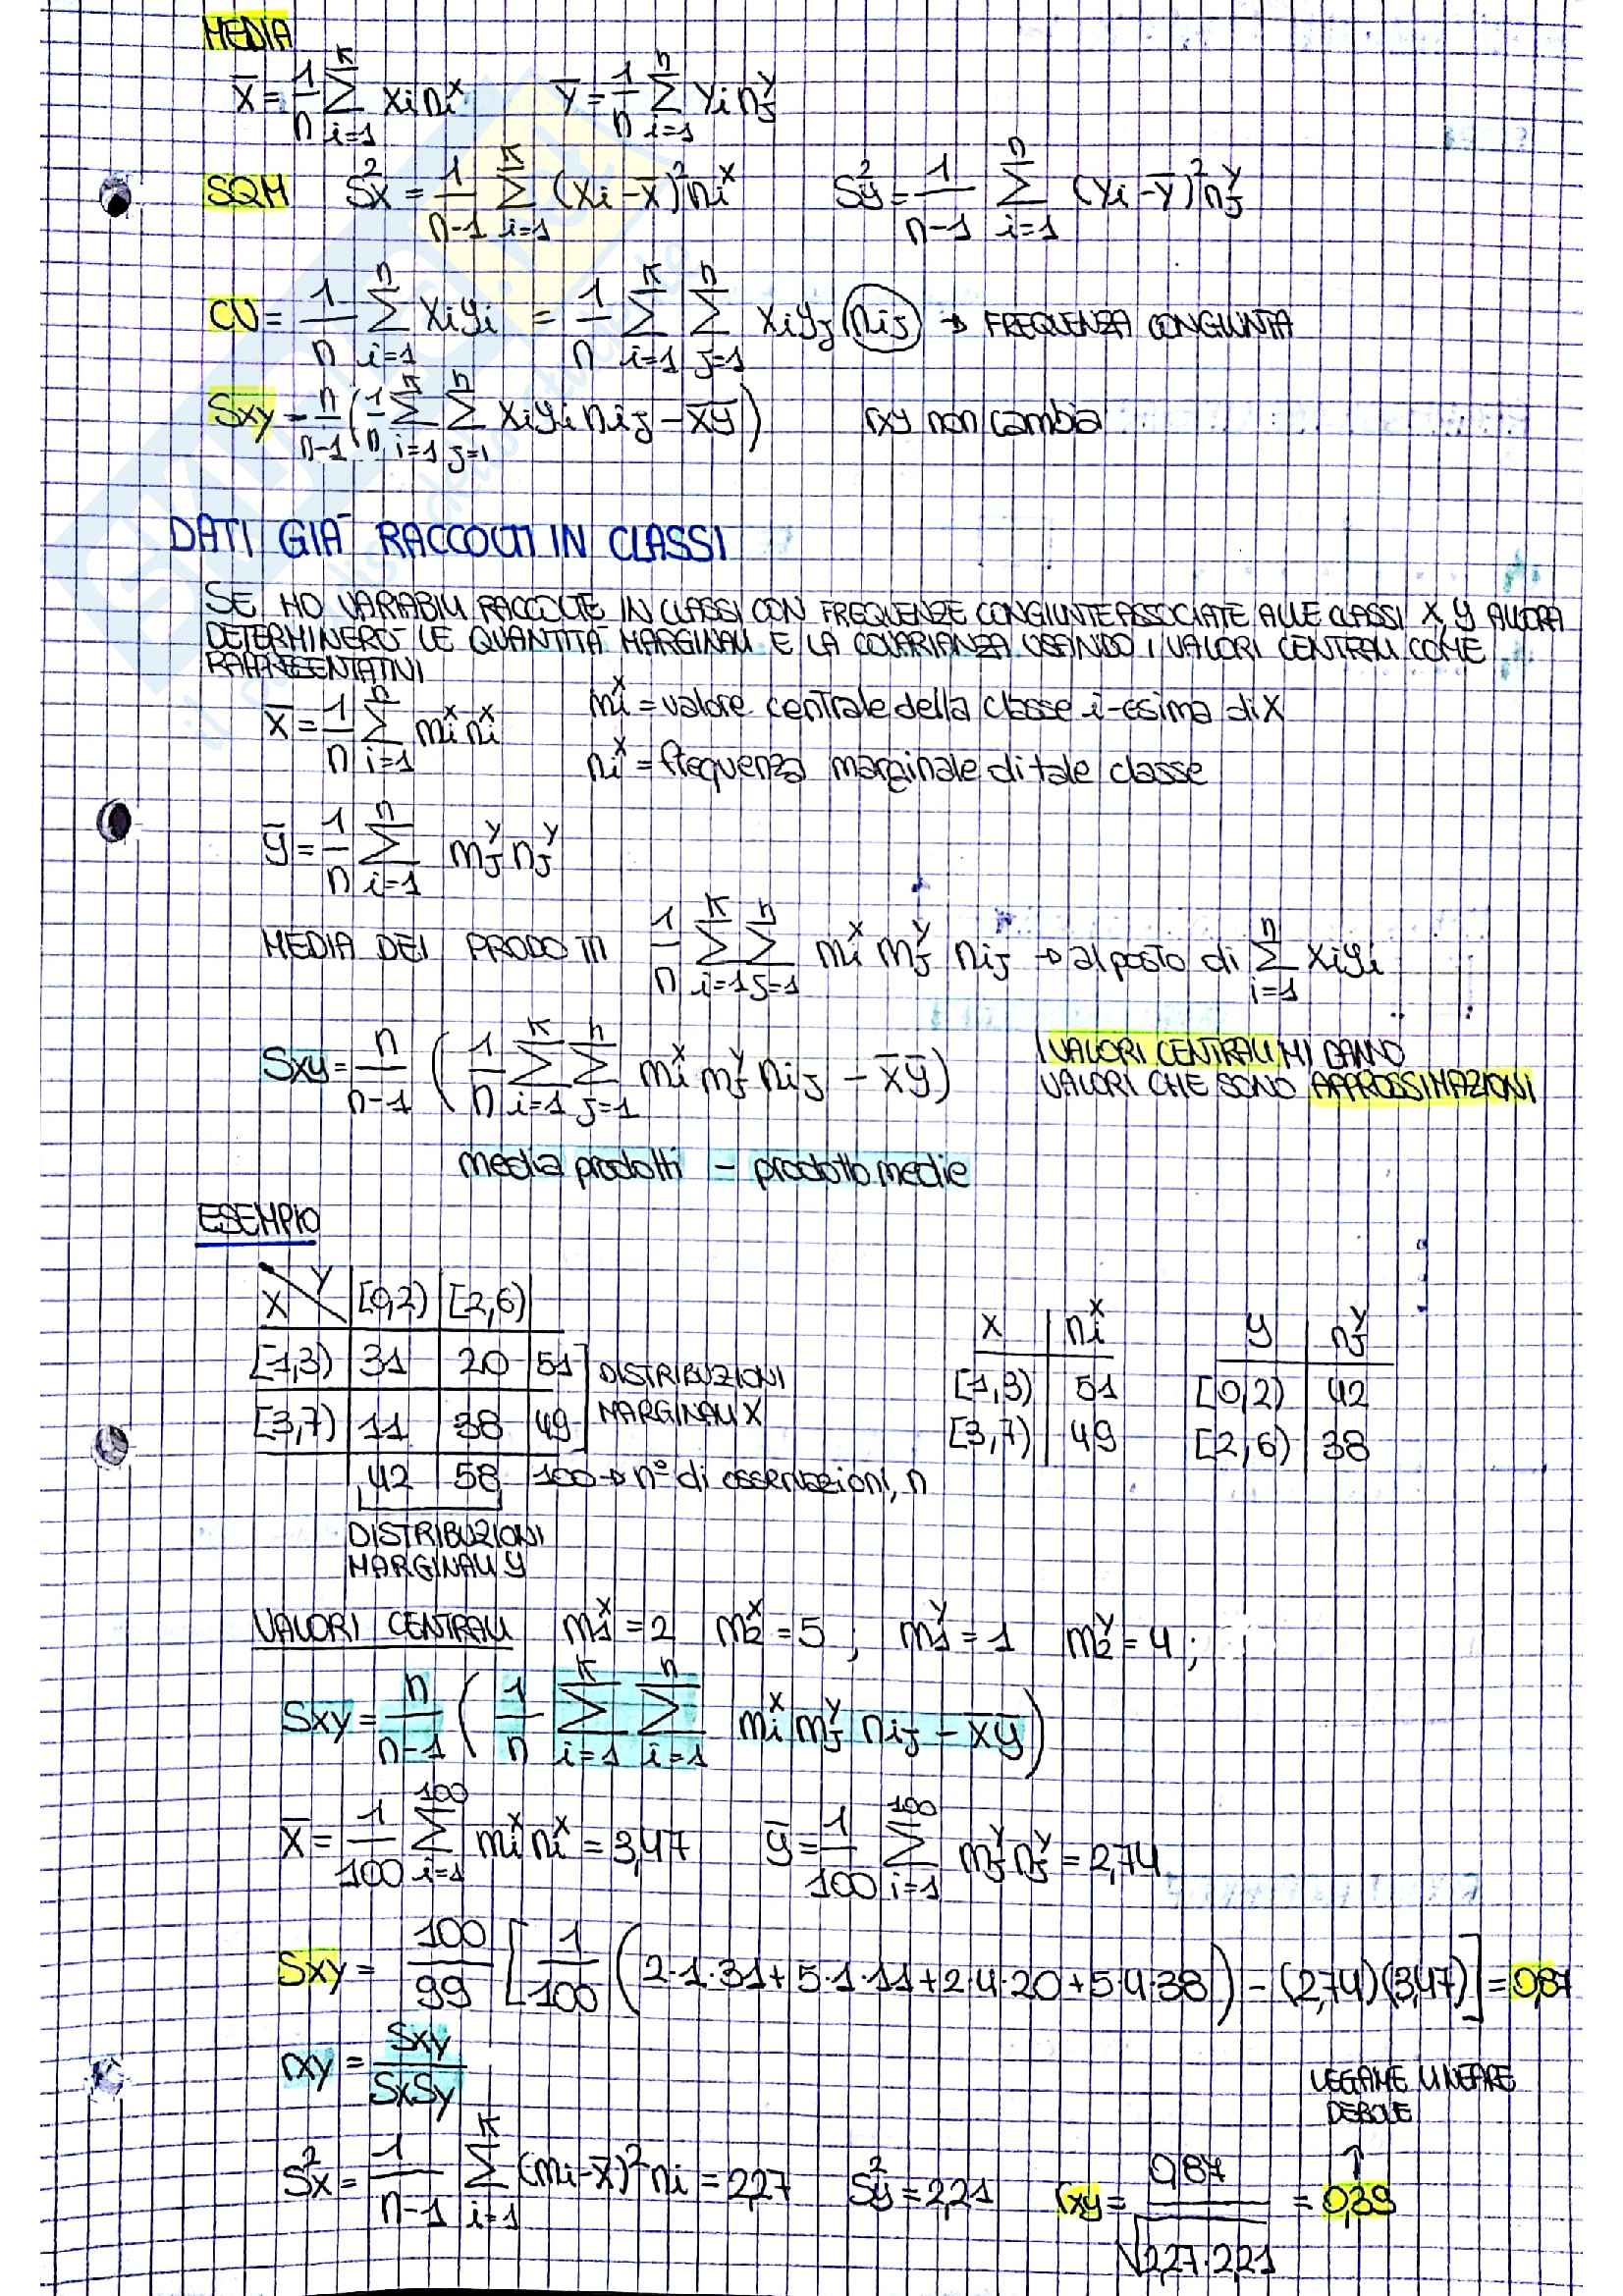 MEDIA
x̄ = 1/n Σ_{i=1}^{k} xi ni^x    ȳ = 1/n Σ_{i=1}^{n} yi nj^y
SQM  Sx² = 1/(n-1) Σ_{i=1}^{k} (xi-x̄)² ni^x    Sy² = 1/(n-1) Σ_{i=1}^{n} (yi-ȳ)² nj^y
CV = 1/n Σ_{i=1}^{n} xiyi = 1/n Σ_{i=1}^{k} Σ_{j=1}^{n} xi yj nij → FREQUENZA CONGIUNTA
Sxy = n/(n-1) (1/n Σ_{i=1}^{k} Σ_{j=1}^{n} xi yi nij - x̄ȳ)    rxy non cambia
DATI GIÀ RACCOLTI IN CLASSI
SE HO VARIABILI RACCOLTE IN CLASSI CON FREQUENZE CONGIUNTE ASSOCIATE ALLE CLASSI X, Y ALLORA
DETERMINERÒ LE QUANTITÀ MARGINALI E LA COVARIANZA USANDO I VALORI CENTRALI COME
RAPPRESENTATIVI
x̄ = 1/n Σ_{i=1}^{n} mi^x ni^x    mi^x = valore centrale della classe i-esima di X
ni^x = frequenza marginale di tale classe
ȳ = 1/n Σ_{i=1}^{n} mj^y nj^y
MEDIA DEI PRODOTTI  1/n Σ_{i=1}^{k} Σ_{j=1}^{n} mi^x mj^y nij → al posto di Σ_{i=1}^{n} xiyi
Sxy = n/(n-1) (1/n Σ_{i=1}^{k} Σ_{j=1}^{n} mi^x mj^y nij - x̄ȳ)    I VALORI CENTRALI MI DANNO
VALORI CHE SONO APPROSSIMAZIONI
media prodotti - prodotto medie
ESEMPIO
X \ Y | [0,2) | [2,6)
[1,3) | 31 | 20 | 51  DISTRIBUZIONI
[3,7) | 11 | 38 | 49  MARGINALI X
42 | 58 | 100 → n° di osservazioni, n
DISTRIBUZIONI
MARGINALI Y
x | ni^x
[1,3) | 51
[3,7) | 49
y | nj^y
[0,2) | 42
[2,6) | 38
VALORI CENTRALI  m1^x = 2  m2^x = 5 ;  m1^y = 1  m2^y = 4 ;
Sxy = n/(n-1) (1/n Σ_{i=1}^{k} Σ_{i=1}^{n} mi^x mj^y nij - x̄ȳ)
x̄ = 1/100 Σ_{i=1}^{100} mi^x ni^x = 3,47    ȳ = 1/100 Σ_{i=1}^{100} mj^y nj^y = 2,74
Sxy = 100/99 [1/100 (2·1·31+5·1·11+2·4·20+5·4·38) - (2,74)(3,47)] = 0,87
rxy = Sxy/SxSy
LEGAME LINEARE
DEBOLE
↑
Sx² = 1/(n-1) Σ_{i=1}^{k} (mi-x̄)² ni = 2,27    Sy² = 2,21    rxy = 0,87/√(2,27·2,21) = 0,39